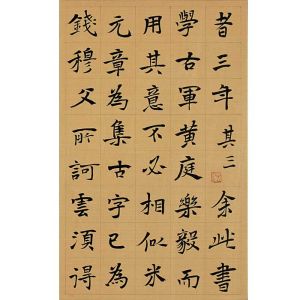 者三年其三余此書
學右軍黃庭樂毅而
用其意不必相似米
元章為集古字已為
錢穆父所訶雲須得